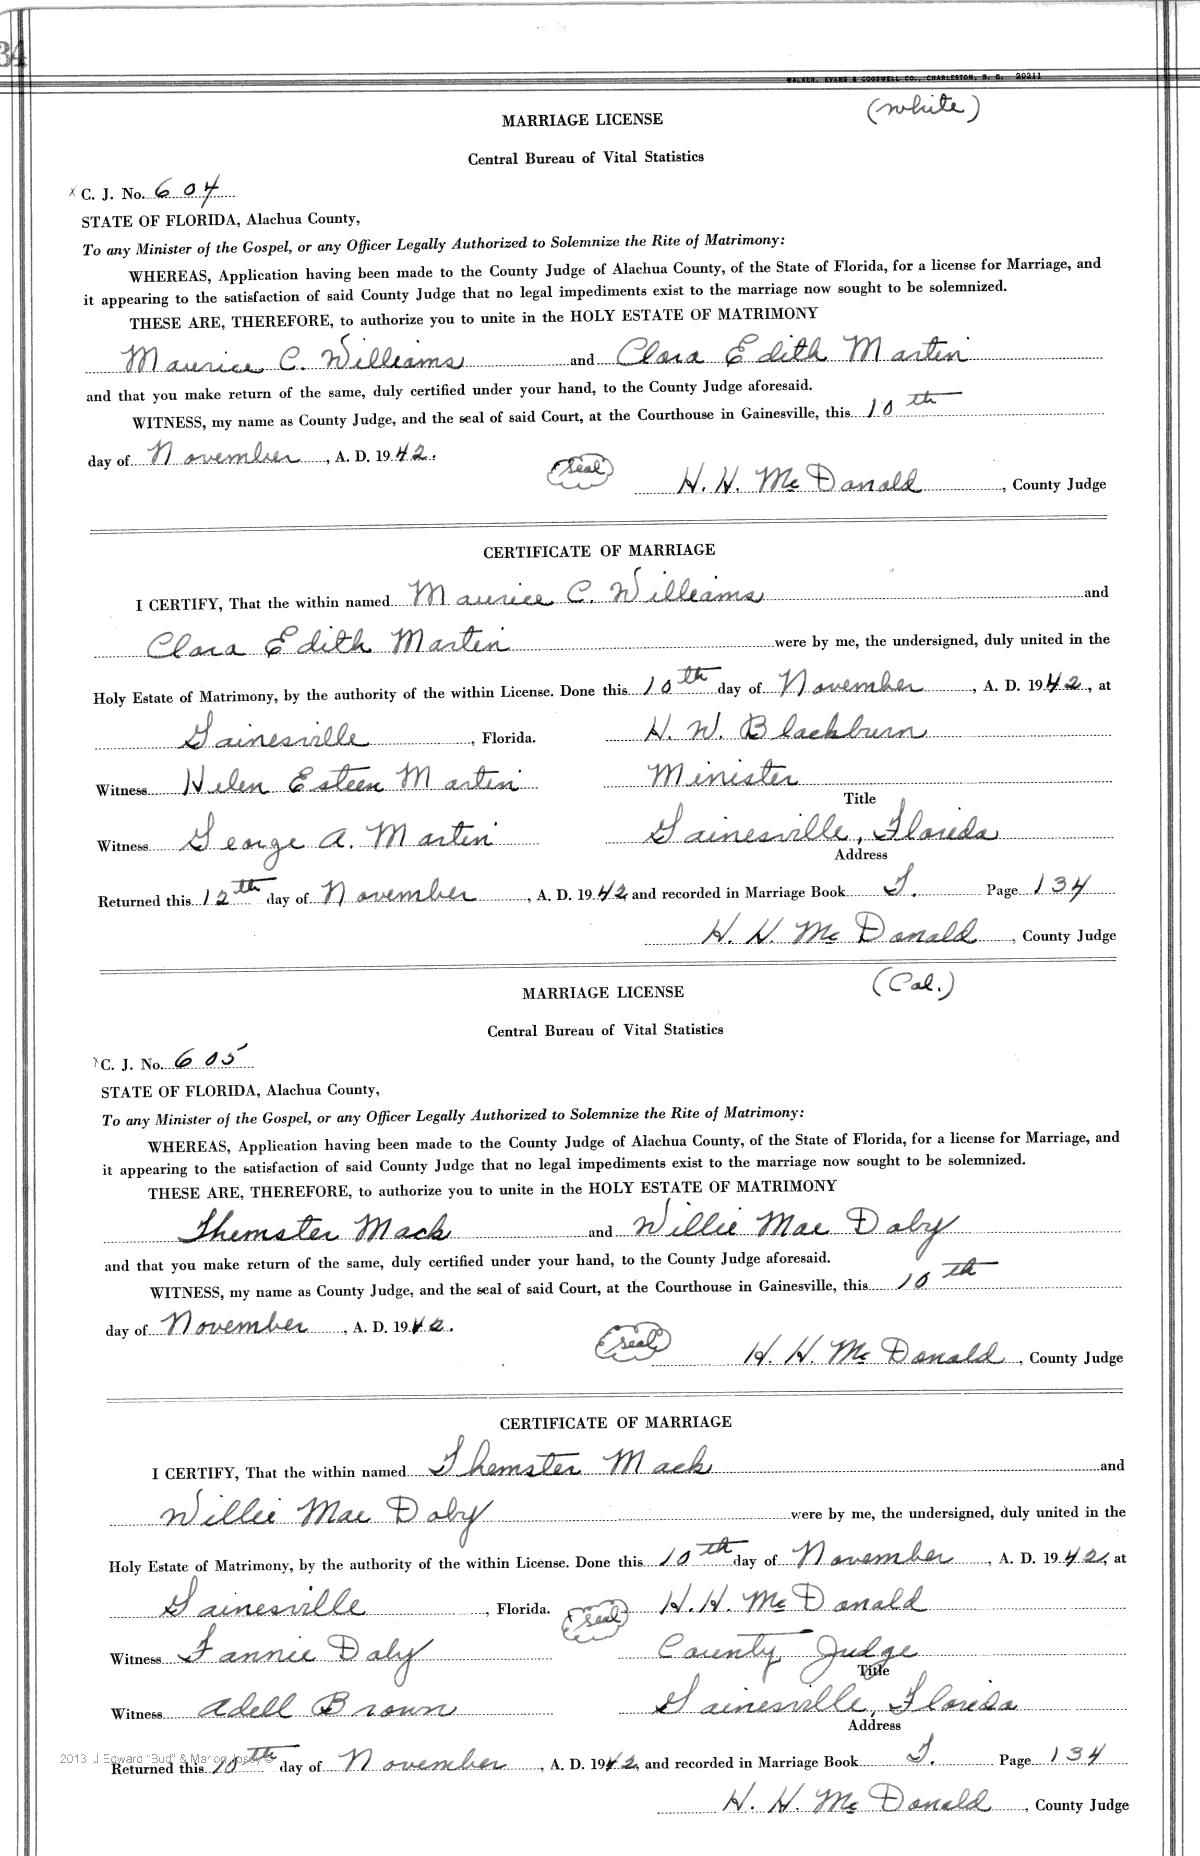 34
WALKER, EVANS & COGSWELL CO., CHARLESTON, S. C. 20211
(White)
MARRIAGE LICENSE
Central Bureau of Vital Statistics
x C. J. No. 604
STATE OF FLORIDA, Alachua County,
To any Minister of the Gospel, or any Officer Legally Authorized to Solemnize the Rite of Matrimony:
WHEREAS, Application having been made to the County Judge of Alachua County, of the State of Florida, for a license for Marriage, and
it appearing to the satisfaction of said County Judge that no legal impediments exist to the marriage now sought to be solemnized.
THESE ARE, THEREFORE, to authorize you to unite in the HOLY ESTATE OF MATRIMONY
Maurice C. Williams and Clara Edith Martin
and that you make return of the same, duly certified under your hand, to the County Judge aforesaid.
WITNESS, my name as County Judge, and the seal of said Court, at the Courthouse in Gainesville, this 10th
day of November, A. D. 1942.
Seal H. H. McDonald, County Judge
CERTIFICATE OF MARRIAGE
I CERTIFY, That the within named Maurice C. Williams and
Clara Edith Martin were by me, the undersigned, duly united in the
Holy Estate of Matrimony, by the authority of the within License. Done this 10th day of November, A. D. 1942, at
Gainesville, Florida. H. W. Blackburn
Witness Helen Esteen Martin Minister
Title
Witness George A. Martin Gainesville, Florida
Address
Returned this 12th day of November, A. D. 1942 and recorded in Marriage Book T. Page 134
H. H. McDonald, County Judge
(Col.)
MARRIAGE LICENSE
Central Bureau of Vital Statistics
C. J. No. 605
STATE OF FLORIDA, Alachua County,
To any Minister of the Gospel, or any Officer Legally Authorized to Solemnize the Rite of Matrimony:
WHEREAS, Application having been made to the County Judge of Alachua County, of the State of Florida, for a license for Marriage, and
it appearing to the satisfaction of said County Judge that no legal impediments exist to the marriage now sought to be solemnized.
THESE ARE, THEREFORE, to authorize you to unite in the HOLY ESTATE OF MATRIMONY
Themster Mack and Willie Mae Doby
and that you make return of the same, duly certified under your hand, to the County Judge aforesaid.
WITNESS, my name as County Judge, and the seal of said Court, at the Courthouse in Gainesville, this 10th
day of November, A. D. 1942.
Seal H. H. McDonald, County Judge
CERTIFICATE OF MARRIAGE
I CERTIFY, That the within named Themster Mack and
Willie Mae Doby were by me, the undersigned, duly united in the
Holy Estate of Matrimony, by the authority of the within License. Done this 10th day of November, A. D. 1942, at
Gainesville, Florida. Seal H. H. McDonald
Witness Fannie Doby County Judge
Title
Witness Adell Brown Gainesville, Florida
Address
2013 J Edward "Bud" & Marion Josey ©
Returned this 10th day of November, A. D. 1942, and recorded in Marriage Book T. Page 134
H. H. McDonald, County Judge